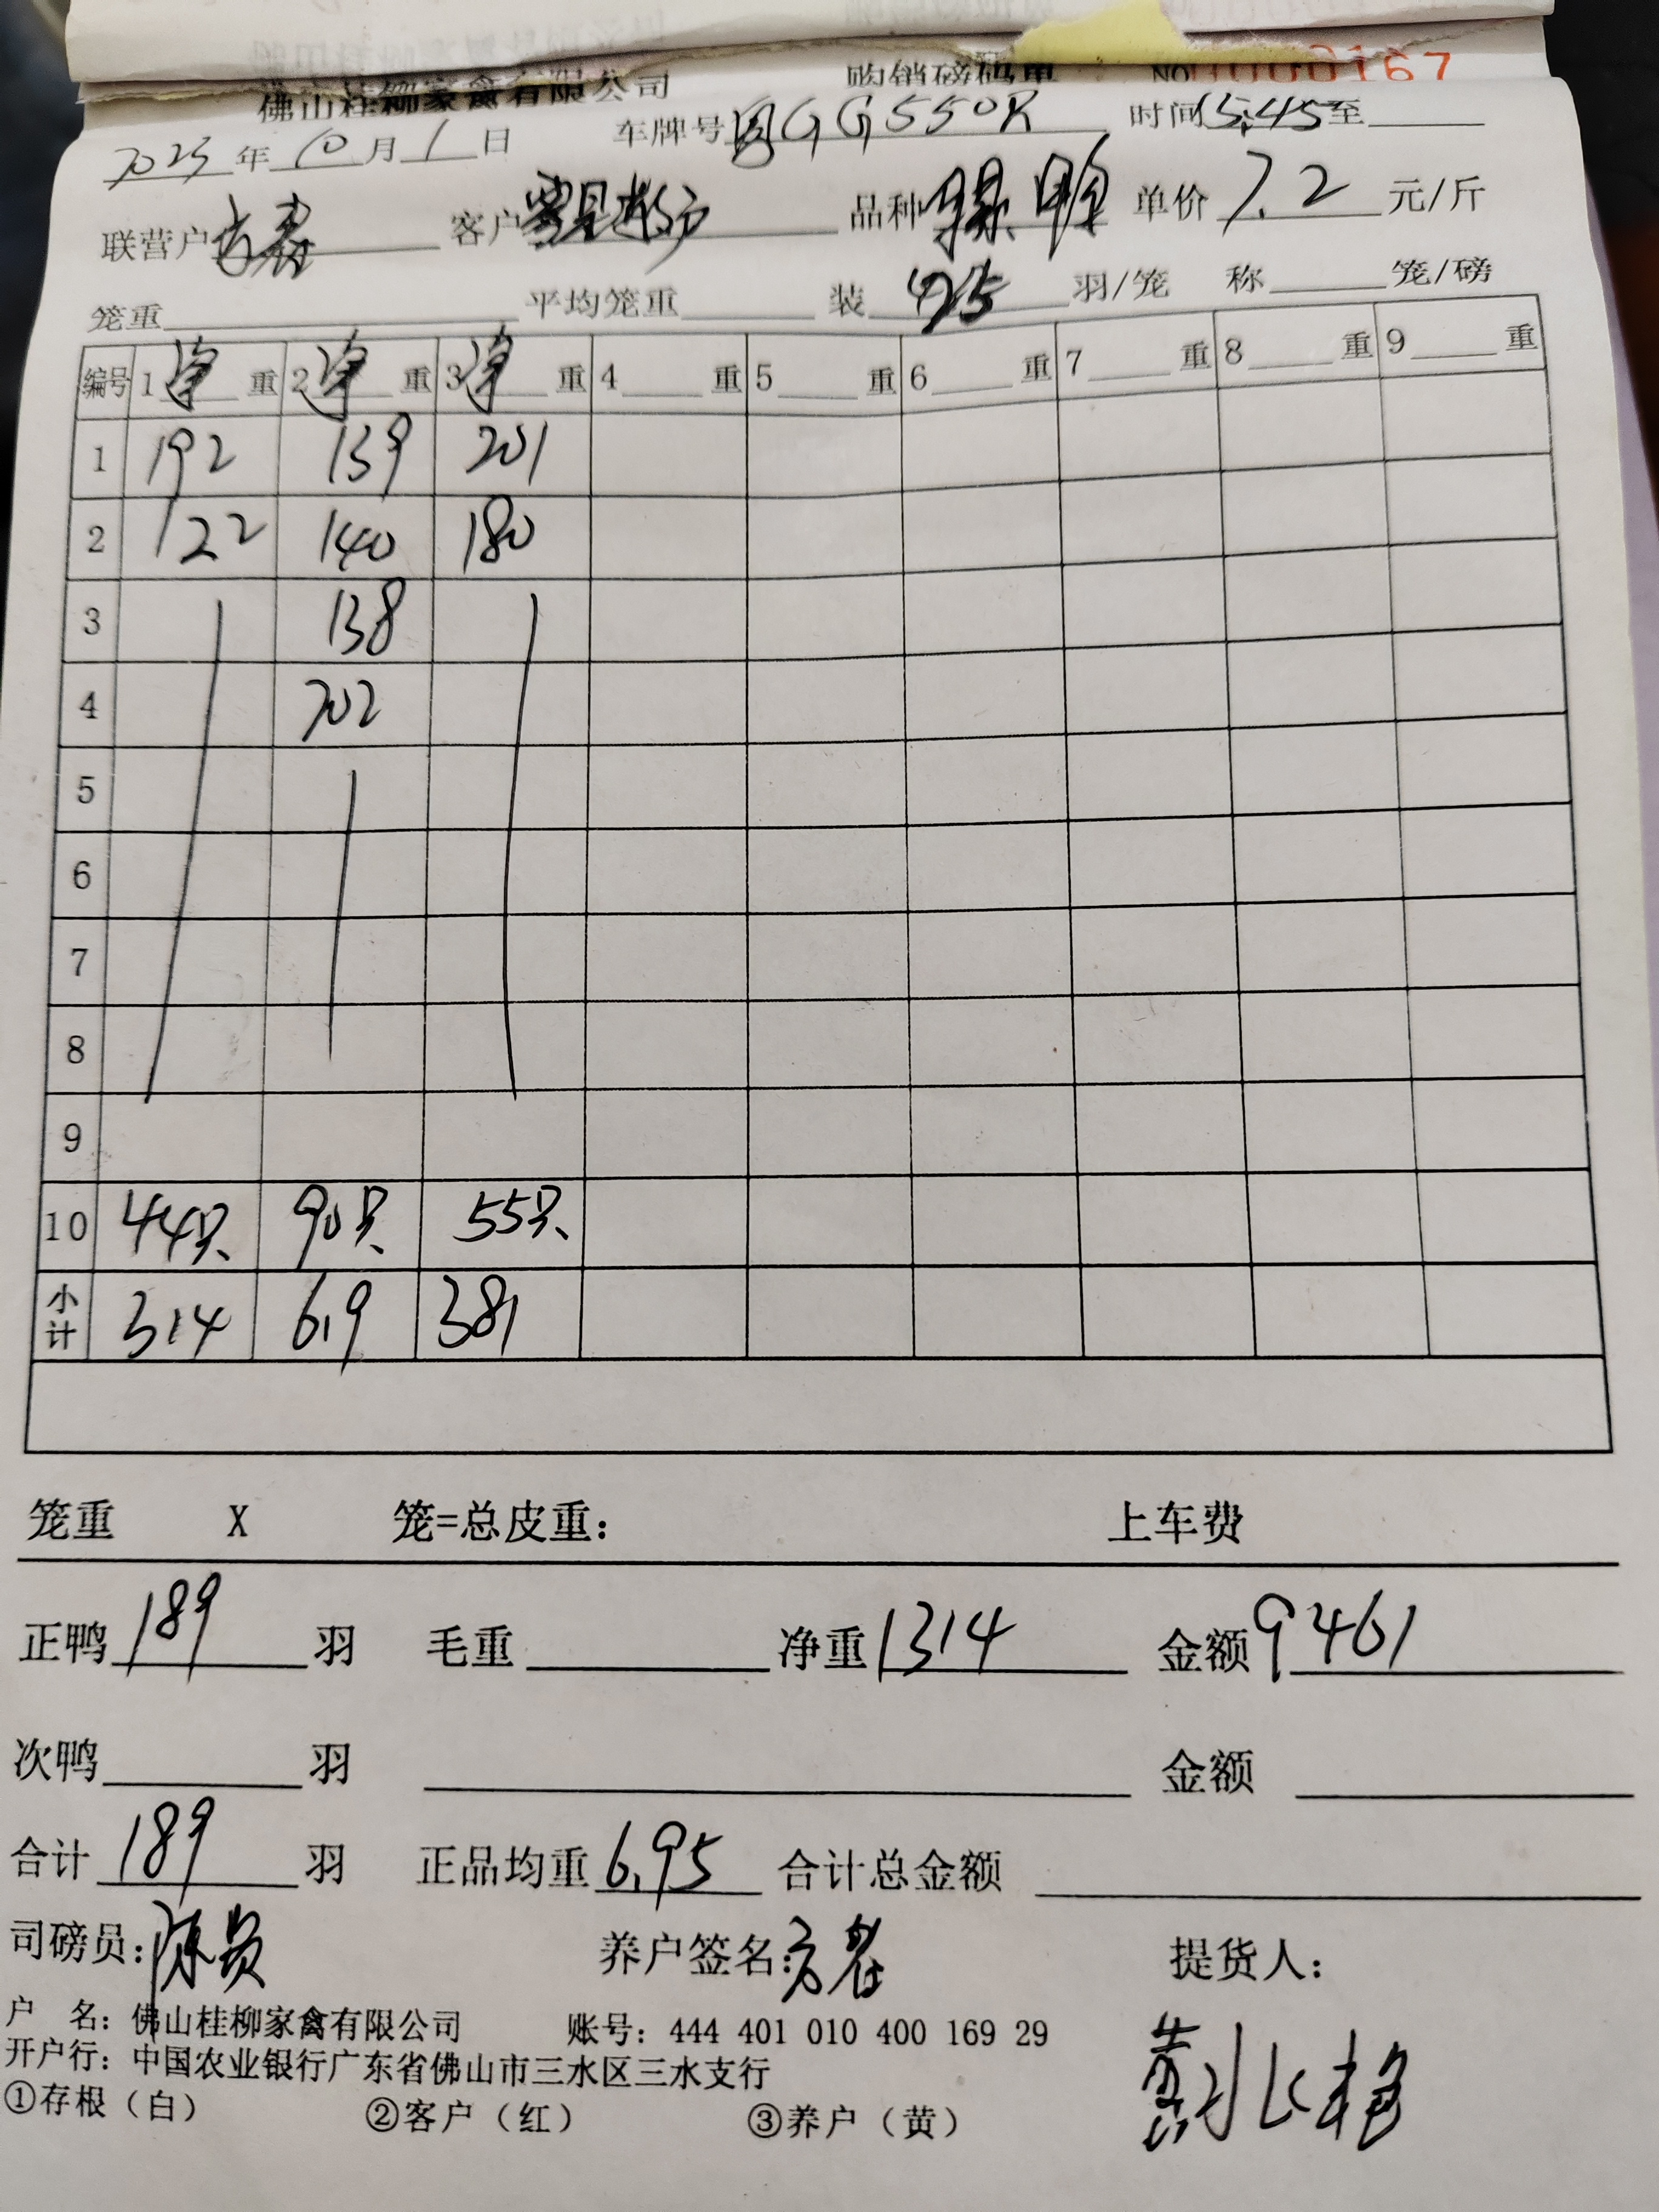 佛山桂柳家禽有限公司 购销磅码单 NO 0000167
2025年10月1日 车牌号粤GG550R 时间15:45至
联营户 客户 品种 单价7.2元/斤
笼重 平均笼重 装 羽/笼 称 笼/磅
编号 1净重 2净重 3净重 4重 5重 6重 7重 8重 9重
1 192 139 201
2 122 140 180
3 138
4 202
5
6
7
8
9
10 44只 90只 55只
小计 314 619 381
笼重 X 笼=总皮重: 上车费
正鸭189羽 毛重 净重1314 金额9461
次鸭 羽 金额
合计189羽 正品均重6.95 合计总金额
司磅员: 养户签名: 提货人:
户 名: 佛山桂柳家禽有限公司 账号: 444 401 010 400 169 29
开户行: 中国农业银行广东省佛山市三水区三水支行
①存根（白） ②客户（红） ③养户（黄）